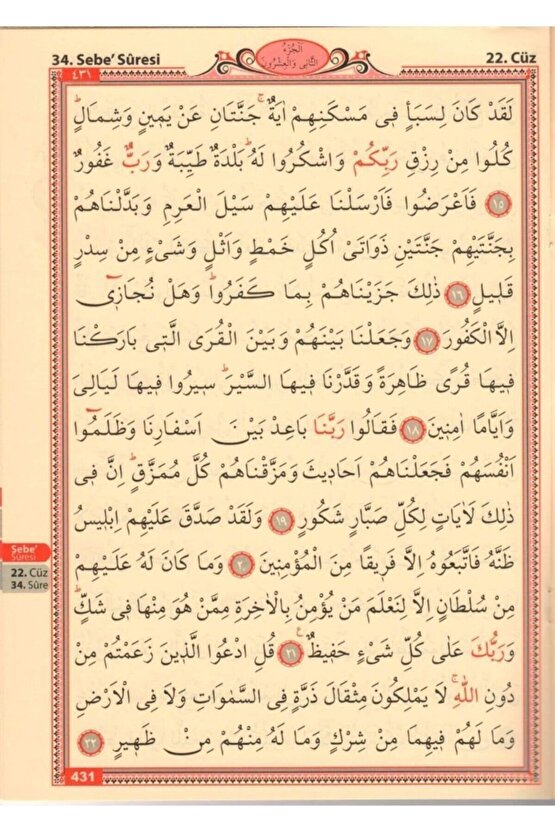 34. Sebe' Sûresi
اَلْجُزْءُ
الثَّانِى وَالْعِشْرُونَ
22. Cüz
٤٣١
لَقَدْ كَانَ لِسَبَأٍ فِى مَسْكَنِهِمْ اٰيَةٌۚ جَنَّتَانِ عَنْ يَمِينٍ وَشِمَالٍۜ
كُلُوا مِنْ رِزْقِ رَبِّكُمْ وَاشْكُرُوا لَهُۜ بَلْدَةٌ طَيِّبَةٌ وَرَبٌّ غَفُورٌ
١٥ فَاَعْرَضُوا فَاَرْسَلْنَا عَلَيْهِمْ سَيْلَ الْعَرِمِ وَبَدَّلْنَاهُمْ
بِجَنَّتَيْهِمْ جَنَّتَيْنِ ذَوَاتَىْ اُكُلٍ خَمْطٍ وَاَثْلٍ وَشَىْءٍ مِنْ سِدْرٍ
قَلِيلٍ ١٦ ذٰلِكَ جَزَيْنَاهُمْ بِمَا كَفَرُواۜ وَهَلْ نُجَازِٓى
اِلَّا الْكَفُورَ ١٧ وَجَعَلْنَا بَيْنَهُمْ وَبَيْنَ الْقُرَى الَّتِى بَارَكْنَا
فِيهَا قُرًى ظَاهِرَةً وَقَدَّرْنَا فِيهَا السَّيْرَۜ سِيرُوا فِيهَا لَيَالِىَ
وَاَيَّامًا اٰمِنِينَ ١٨ فَقَالُوا رَبَّنَا بَاعِدْ بَيْنَ اَسْفَارِنَا وَظَلَمُٓوا
اَنْفُسَهُمْ فَجَعَلْنَاهُمْ اَحَادِيثَ وَمَزَّقْنَاهُمْ كُلَّ مُمَزَّقٍۜ اِنَّ فِى
ذٰلِكَ لَاٰيَاتٍ لِكُلِّ صَبَّارٍ شَكُورٍ ١٩ وَلَقَدْ صَدَّقَ عَلَيْهِمْ اِبْلِيسُ
ظَنَّهُ فَاتَّبَعُوهُ اِلَّا فَرِيقًا مِنَ الْمُؤْمِنِينَ ٢٠ وَمَا كَانَ لَهُ عَلَيْهِمْ
مِنْ سُلْطَانٍ اِلَّا لِنَعْلَمَ مَنْ يُؤْمِنُ بِالْاٰخِرَةِ مِمَّنْ هُوَ مِنْهَا فِى شَكٍّۜ
وَرَبُّكَ عَلٰى كُلِّ شَىْءٍ حَفِيظٌ۟ ٢١ قُلِ ادْعُوا الَّذِينَ زَعَمْتُمْ مِنْ
دُونِ اللّٰهِۚ لَا يَمْلِكُونَ مِثْقَالَ ذَرَّةٍ فِى السَّمٰوَاتِ وَلَا فِى الْاَرْضِ
وَمَا لَهُمْ فِيهِمَا مِنْ شِرْكٍ وَمَا لَهُ مِنْهُمْ مِنْ ظَهِيرٍ ٢٢
Sebe'
Sûresi
22. Cüz
34. Sûre
431